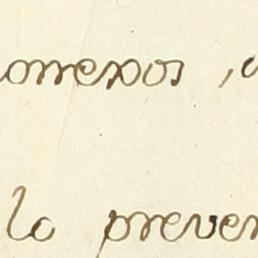 onexos,
lo preven